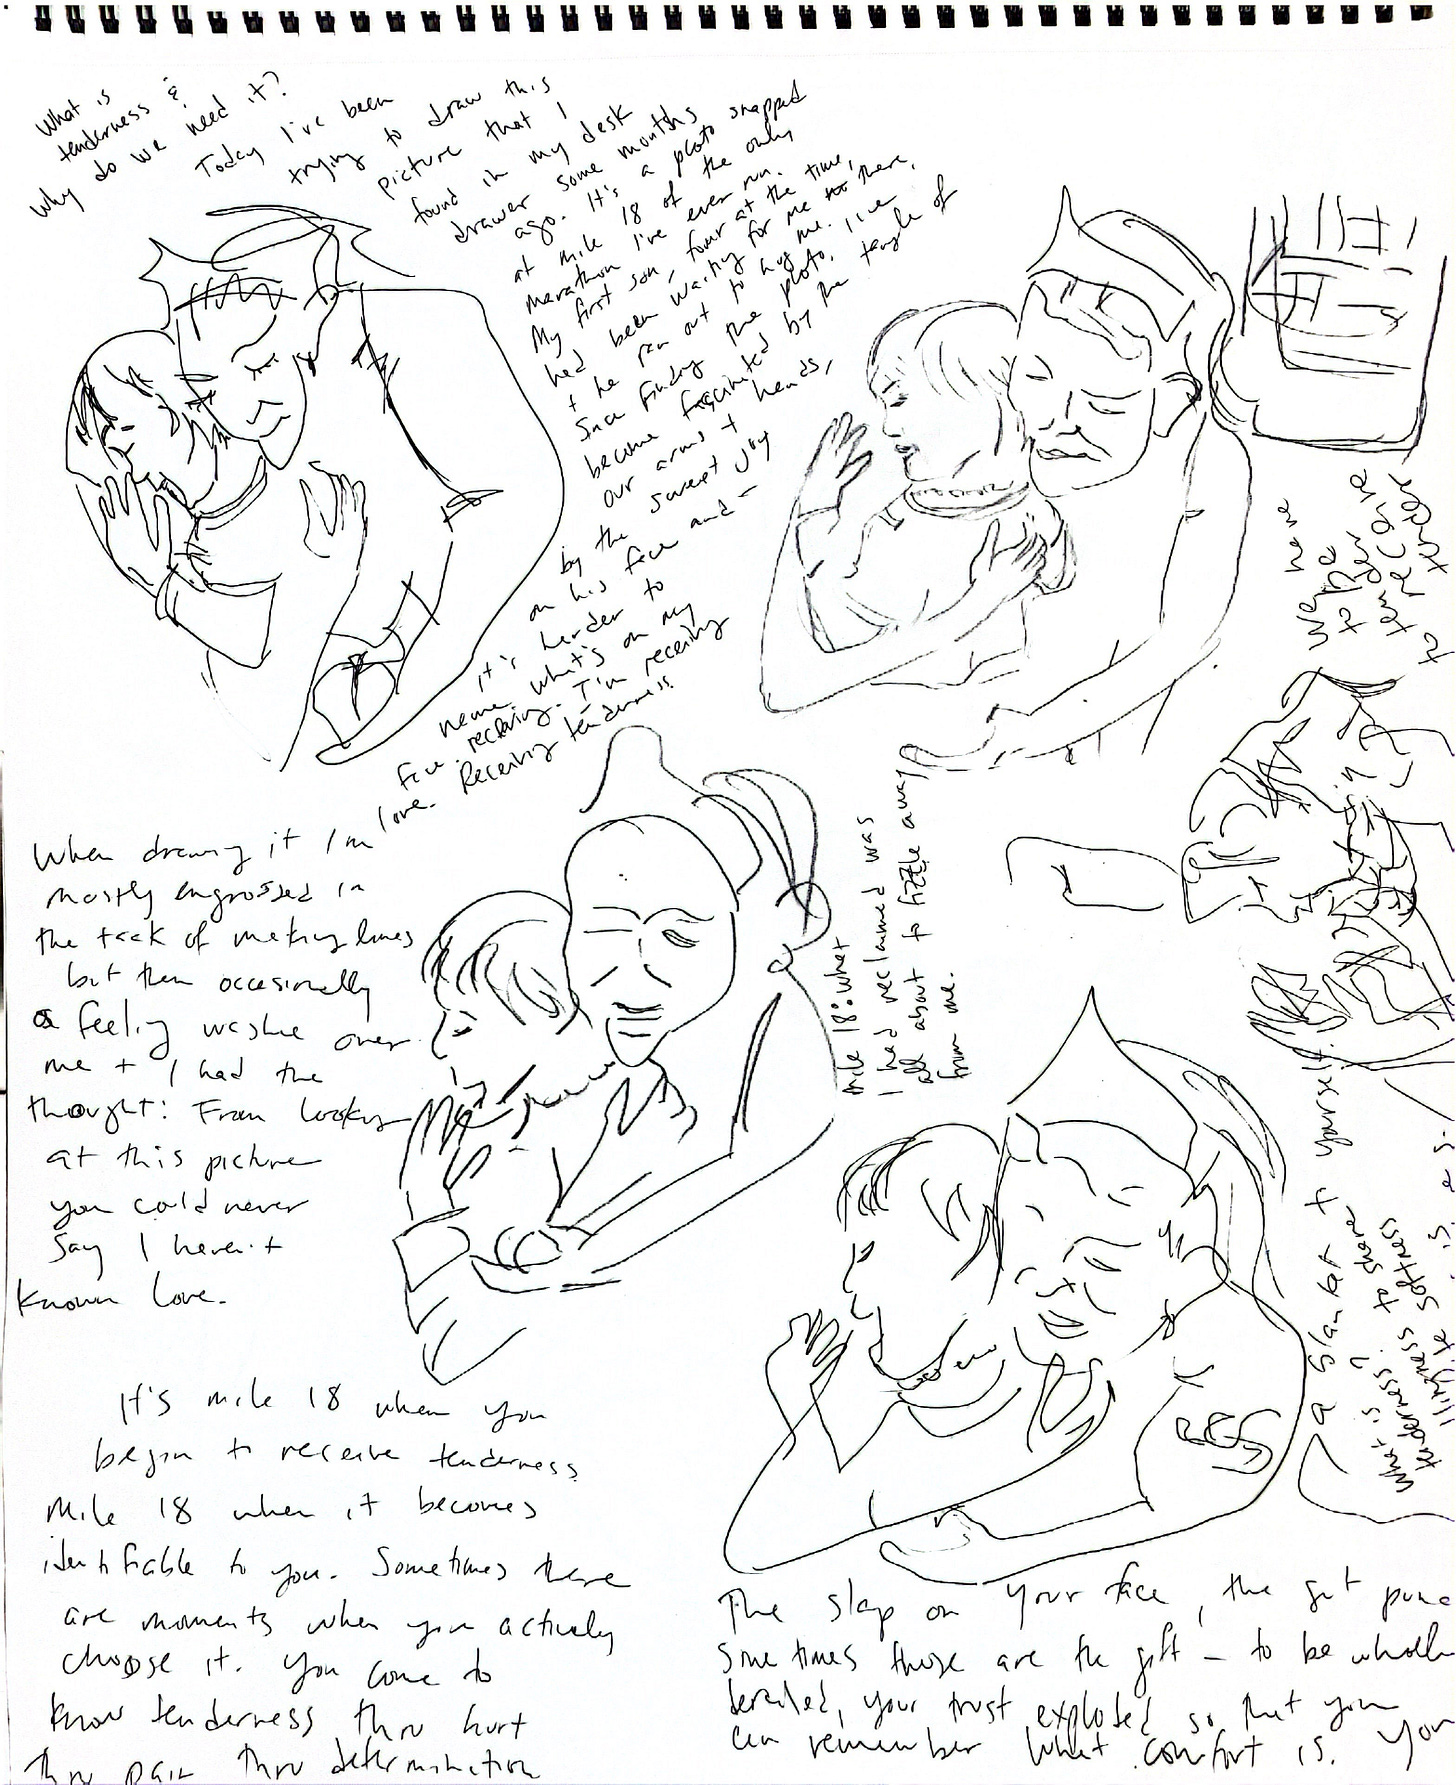 What is
tenderness &
why do we need it?
Today I've been
trying to draw this
picture that I
found in my desk
drawer some months
ago. It's a photo snapped
at mile 18 of the only
marathon I've ever run.
My first son, four at the time,
had been waiting for me there,
+ he ran out to hug me.
Since finding the photo, I've
become fascinated by the tangle of
our arms + hands,
by the sweet joy
on his face and –
it's harder to
name what's on my
face. receiving. I'm receiving
love. Receiving tenderness.
When drawing it I'm
mostly engrossed in
the task of making lines
but then occasionally
a feeling washes over
me + I had the
thought: From looking
at this picture
you could never
say I haven't
known love.
It's mile 18 when you
begin to receive tenderness
Mile 18 when it becomes
identifiable to you. Sometimes there
are moments when you actively
choose it. You come to
know tenderness thru hurt
thru pain thru determination
Mile 18: what
I had reclaimed was
about to fizzle away
from me.
We have
to be
tender
to receive
tender
yourself.
What is
tenderness?
to share
softness
The slap on your face, the gut
sometimes those are the gift – to be
derailed, your trust exploded so that you
can remember what comfort is. You